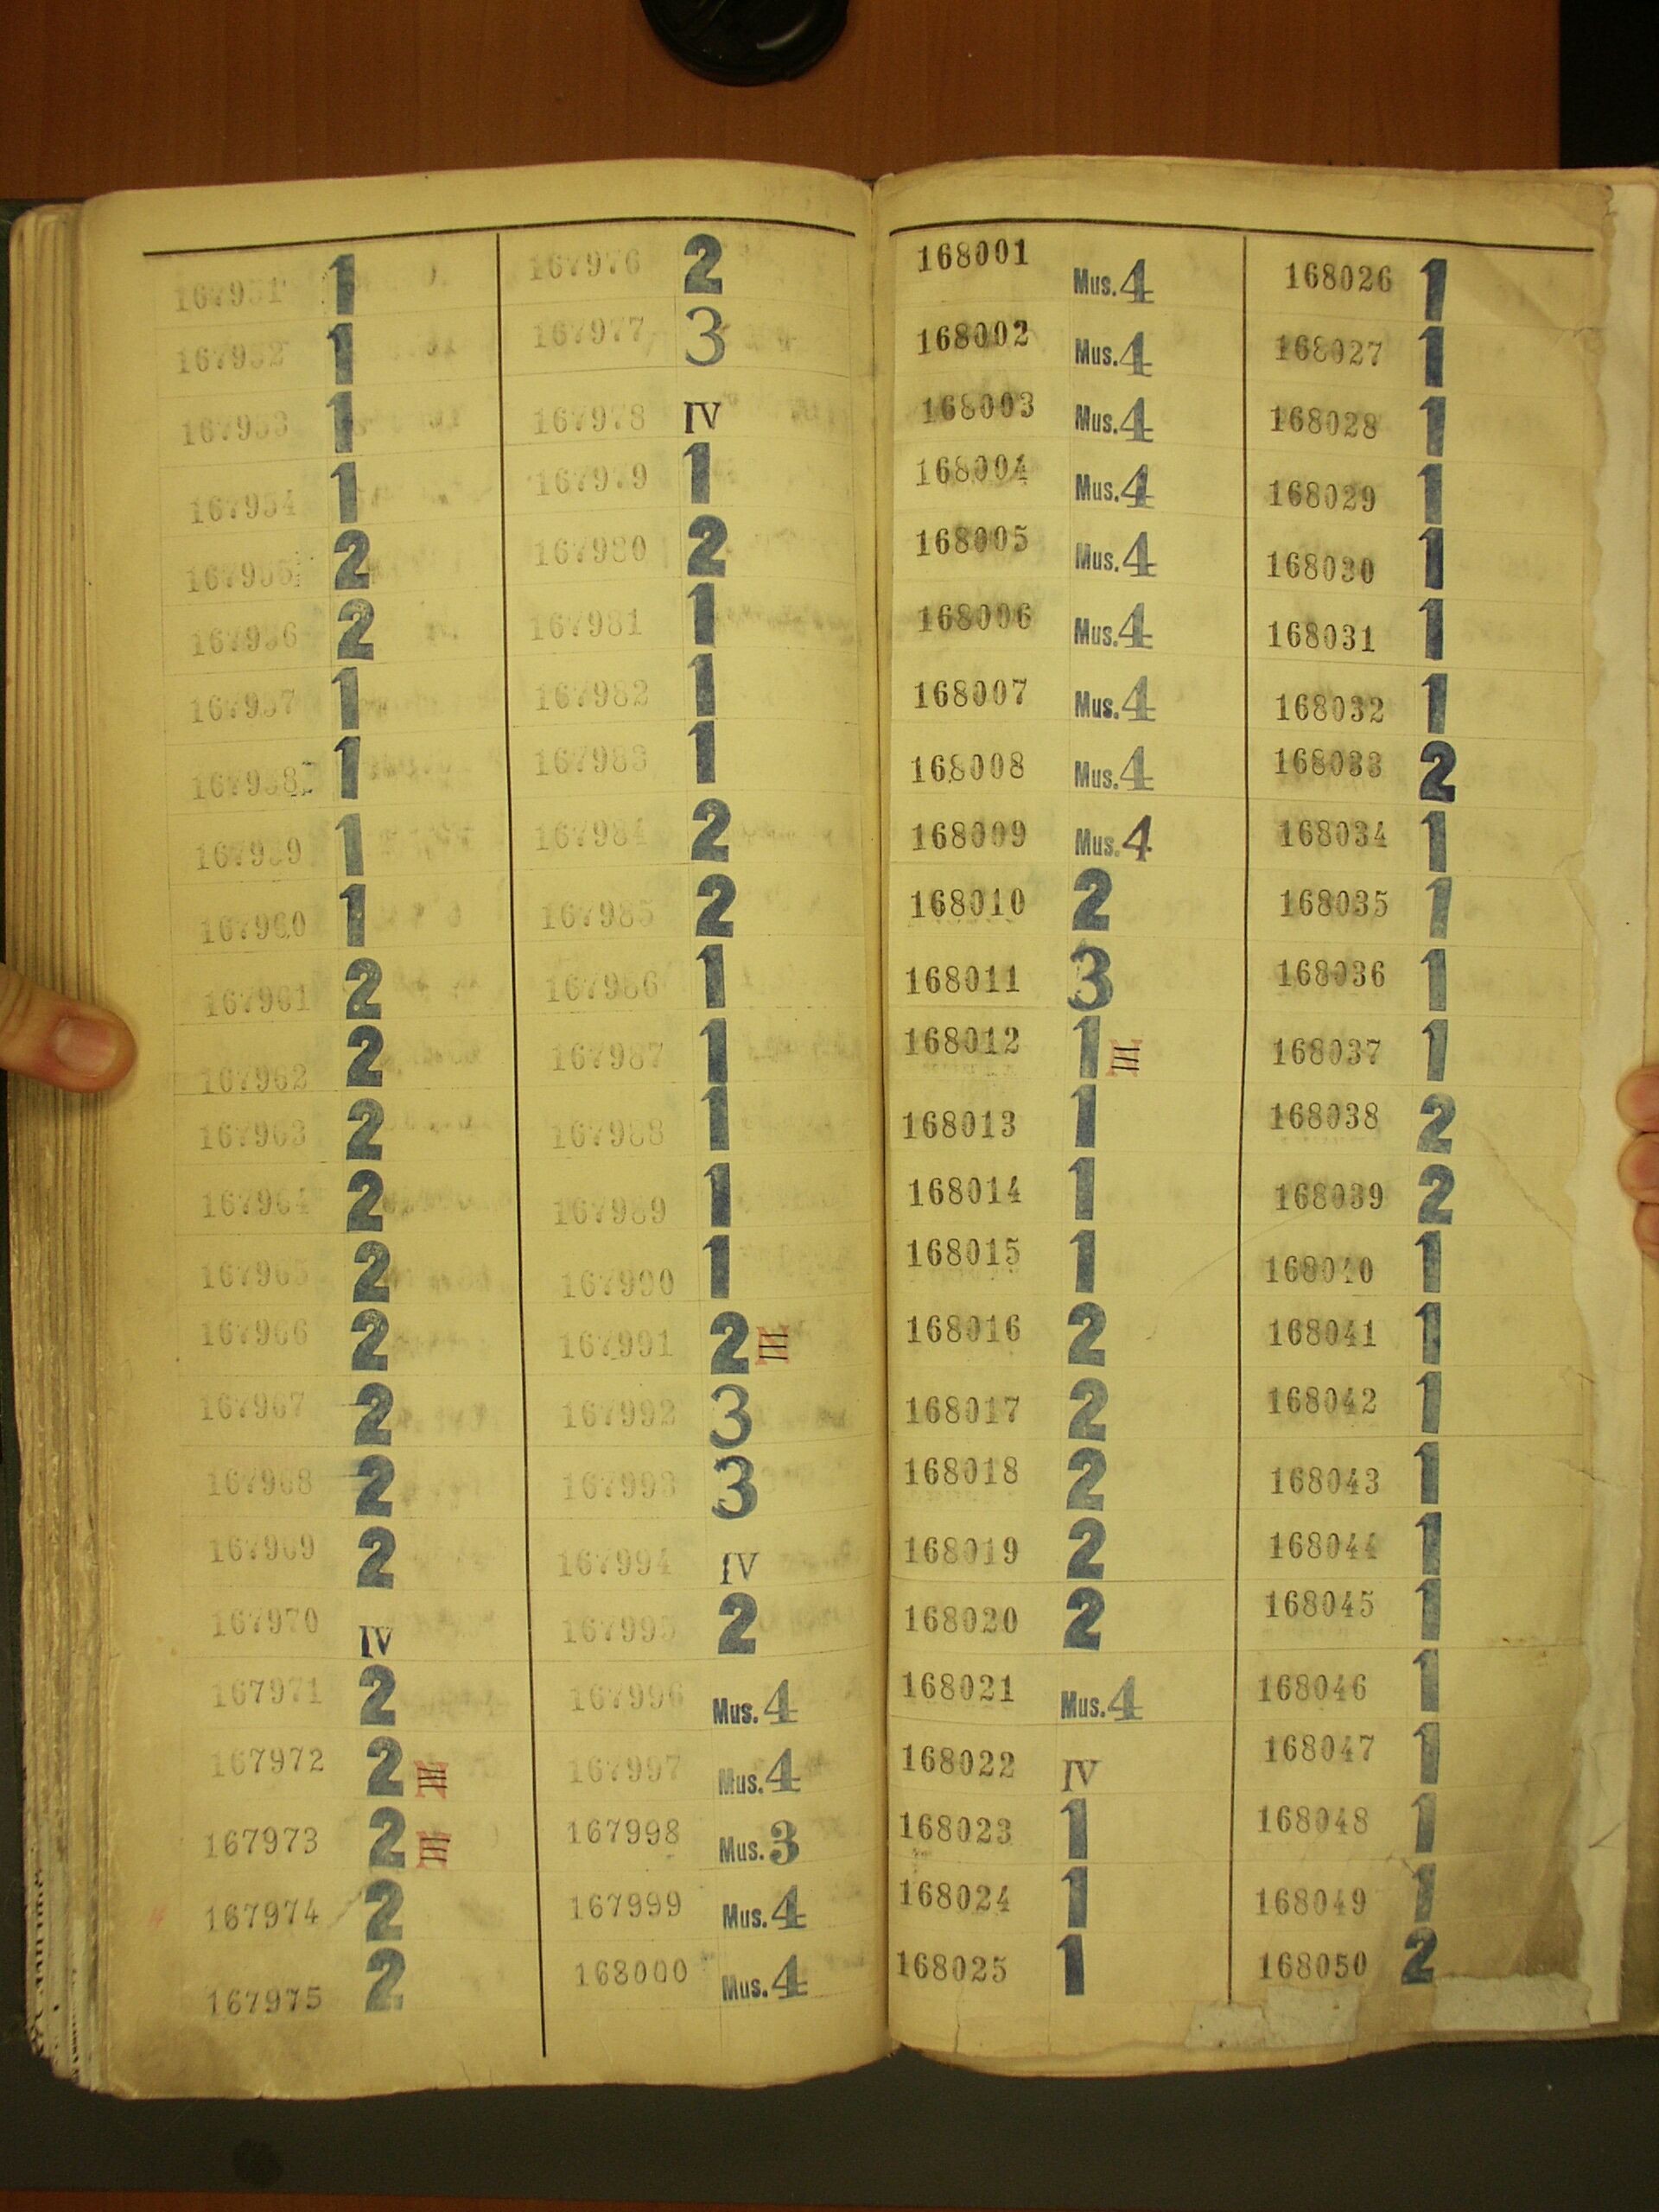 167951 1
167952 1
167953 1
167954 1
167955 2
167956 2
167957 1
167958 1
167959 1
167960 1
167961 2
167962 2
167963 2
167964 2
167965 2
167966 2
167967 2
167968 2
167969 2
167970 IV
167971 2
167972 2
167973 2
167974 2
167975 2
167976 2
167977 3
167978 IV
167979 1
167980 2
167981 1
167982 1
167983 1
167984 2
167985 2
167986 1
167987 1
167988 1
167989 1
167990 1
167991 2
167992 3
167993 3
167994 IV
167995 2
167996 Mus. 4
167997 Mus. 4
167998 Mus. 3
167999 Mus. 4
168000 Mus. 4
168001 Mus. 4
168002 Mus. 4
168003 Mus. 4
168004 Mus. 4
168005 Mus. 4
168006 Mus. 4
168007 Mus. 4
168008 Mus. 4
168009 Mus. 4
168010 2
168011 3
168012 1
168013 1
168014 1
168015 1
168016 2
168017 2
168018 2
168019 2
168020 2
168021 Mus. 4
168022 IV
168023 1
168024 1
168025 1
168026 1
168027 1
168028 1
168029 1
168030 1
168031 1
168032 1
168033 2
168034 1
168035 1
168036 1
168037 1
168038 2
168039 2
168040 1
168041 1
168042 1
168043 1
168044 1
168045 1
168046 1
168047 1
168048 1
168049 1
168050 2